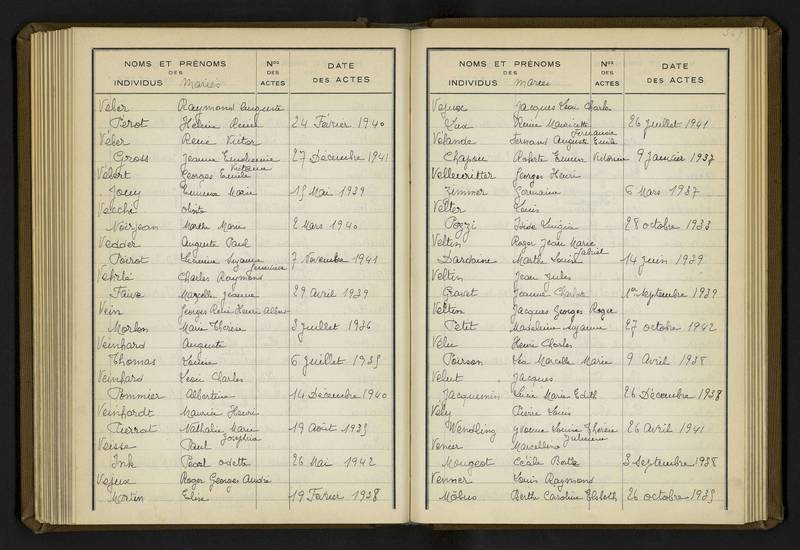 NOMS ET PRÉNOMS
DES
INDIVIDUS Mariés
Nos
DES
ACTES
DATE
DES ACTES
Veber Raymond Auguste
Perot Hélène Renée 24 Février 1940
Veber René Victor
Gross Jeanne 27 Décembre 1941
Victoria
Vébert Georges Emile
Jouy Emma Marie 15 Mai 1939
Vecchi
Noirjean Marthe Marie 2 Mars 1940
Vedder Auguste Paul
Poirot Suzanne 7 Novembre 1941
Charles Raymond
Faivre Marcelle Jeanne 29 Avril 1939
Vein Georges René Henri Albert
Morlon Marie Thérèse 3 Juillet 1936
Veinhard Auguste
Thomas 6 Juillet 1935
Veinhard Léon Charles
Pommier Albertine 14 Décembre 1940
Veinhardt Maurice Henri
Pierrot Nathalie Marie 19 Août 1935
Joséphine
Veisse Paul
Ink Pearl Odette 26 Mai 1942
Vejux Roger Georges André
Martin Elise 19 Février 1938
NOMS ET PRÉNOMS
DES
INDIVIDUS Mariés
Nos
DES
ACTES
DATE
DES ACTES
Vejux Jacques Léon Charles
Lux Reine 26 Juillet 1941
Germaine
Vélande Fernand Auguste Emile
Chapou 9 Janvier 1937
Velleuritter Georges Henri
Zimmer Germaine 6 Mars 1937
Velter Louis
Pozzi Luigia 28 octobre 1933
Veltin Roger Jean Marie
Gabriel
Dardaine Marthe Louise 14 juin 1939
Veltin Jean Jules
Jeanne 1er Septembre 1939
Veltin Jacques Georges Roger
Petit Madeleine Suzanne 27 octobre 1942
Velu Henri Charles
Poirson Léa Marcelle Marie 9 Avril 1938
Velut Jacques
Jacquemin Lucie Marie Edith 26 Décembre 1938
Vély Pierre Louis
Wendling Yvonne Louise Thérèse 26 Avril 1941
Julienne
Venier Marcellino
Mougeot Cécile Berthe 3 Septembre 1938
Venner Louis Raymond
Möbus Berthe Caroline Elisabeth 26 octobre 1935